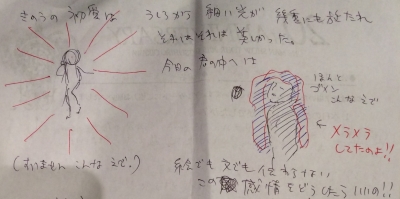 きのうの 初愛は うしろから 細い光が 幾重にも放たれ
それはそれは 美しかった。
今日の 君の中へは
ほんと
ゴメン
こんなえで
← メラメラ
してたのよ!!
(すいません こんなえで。)
絵でも 文でも 伝わらない
この 感情をどうしたらいいの!!